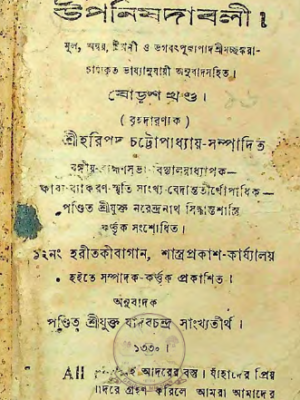 উপনিষদাবলী।
মূল, অন্বয়, টিপ্পনী ও ভগবৎপূজ্যপাদ শ্রীমচ্ছঙ্করা-
চার্য্যকৃত ভাষ্যানুযায়ী অনুবাদসহিত।
ষোড়শ খণ্ড।
(বৃহদারণ্যক)
শ্রীহরিপদ চট্টোপাধ্যায়-সম্পাদিত
বঙ্গীয়-ব্রাহ্মণসভা-বিদ্যালয়াধ্যাপক—
কাব্য-ব্যাকরণ-স্মৃতি সাংখ্য-বেদান্ততীর্থোপাধিক—
পণ্ডিত শ্রীযুক্ত নরেন্দ্রনাথ সিদ্ধান্তশাস্ত্রি
কর্ত্তৃক সংশোধিত।
১২নং হরীতকীবাগান, শাস্ত্রপ্রকাশ-কার্য্যালয়
হইতে সম্পাদক-কর্ত্তৃক প্রকাশিত।
অনুবাদক
পণ্ডিত শ্রীযুক্ত যাদবচন্দ্র সাংখ্যতীর্থ।
১৩৩০।
All আদরের বস্তু। যাঁহাদের প্রিয়
গ্রহণ করিলে আমরা আমাদের